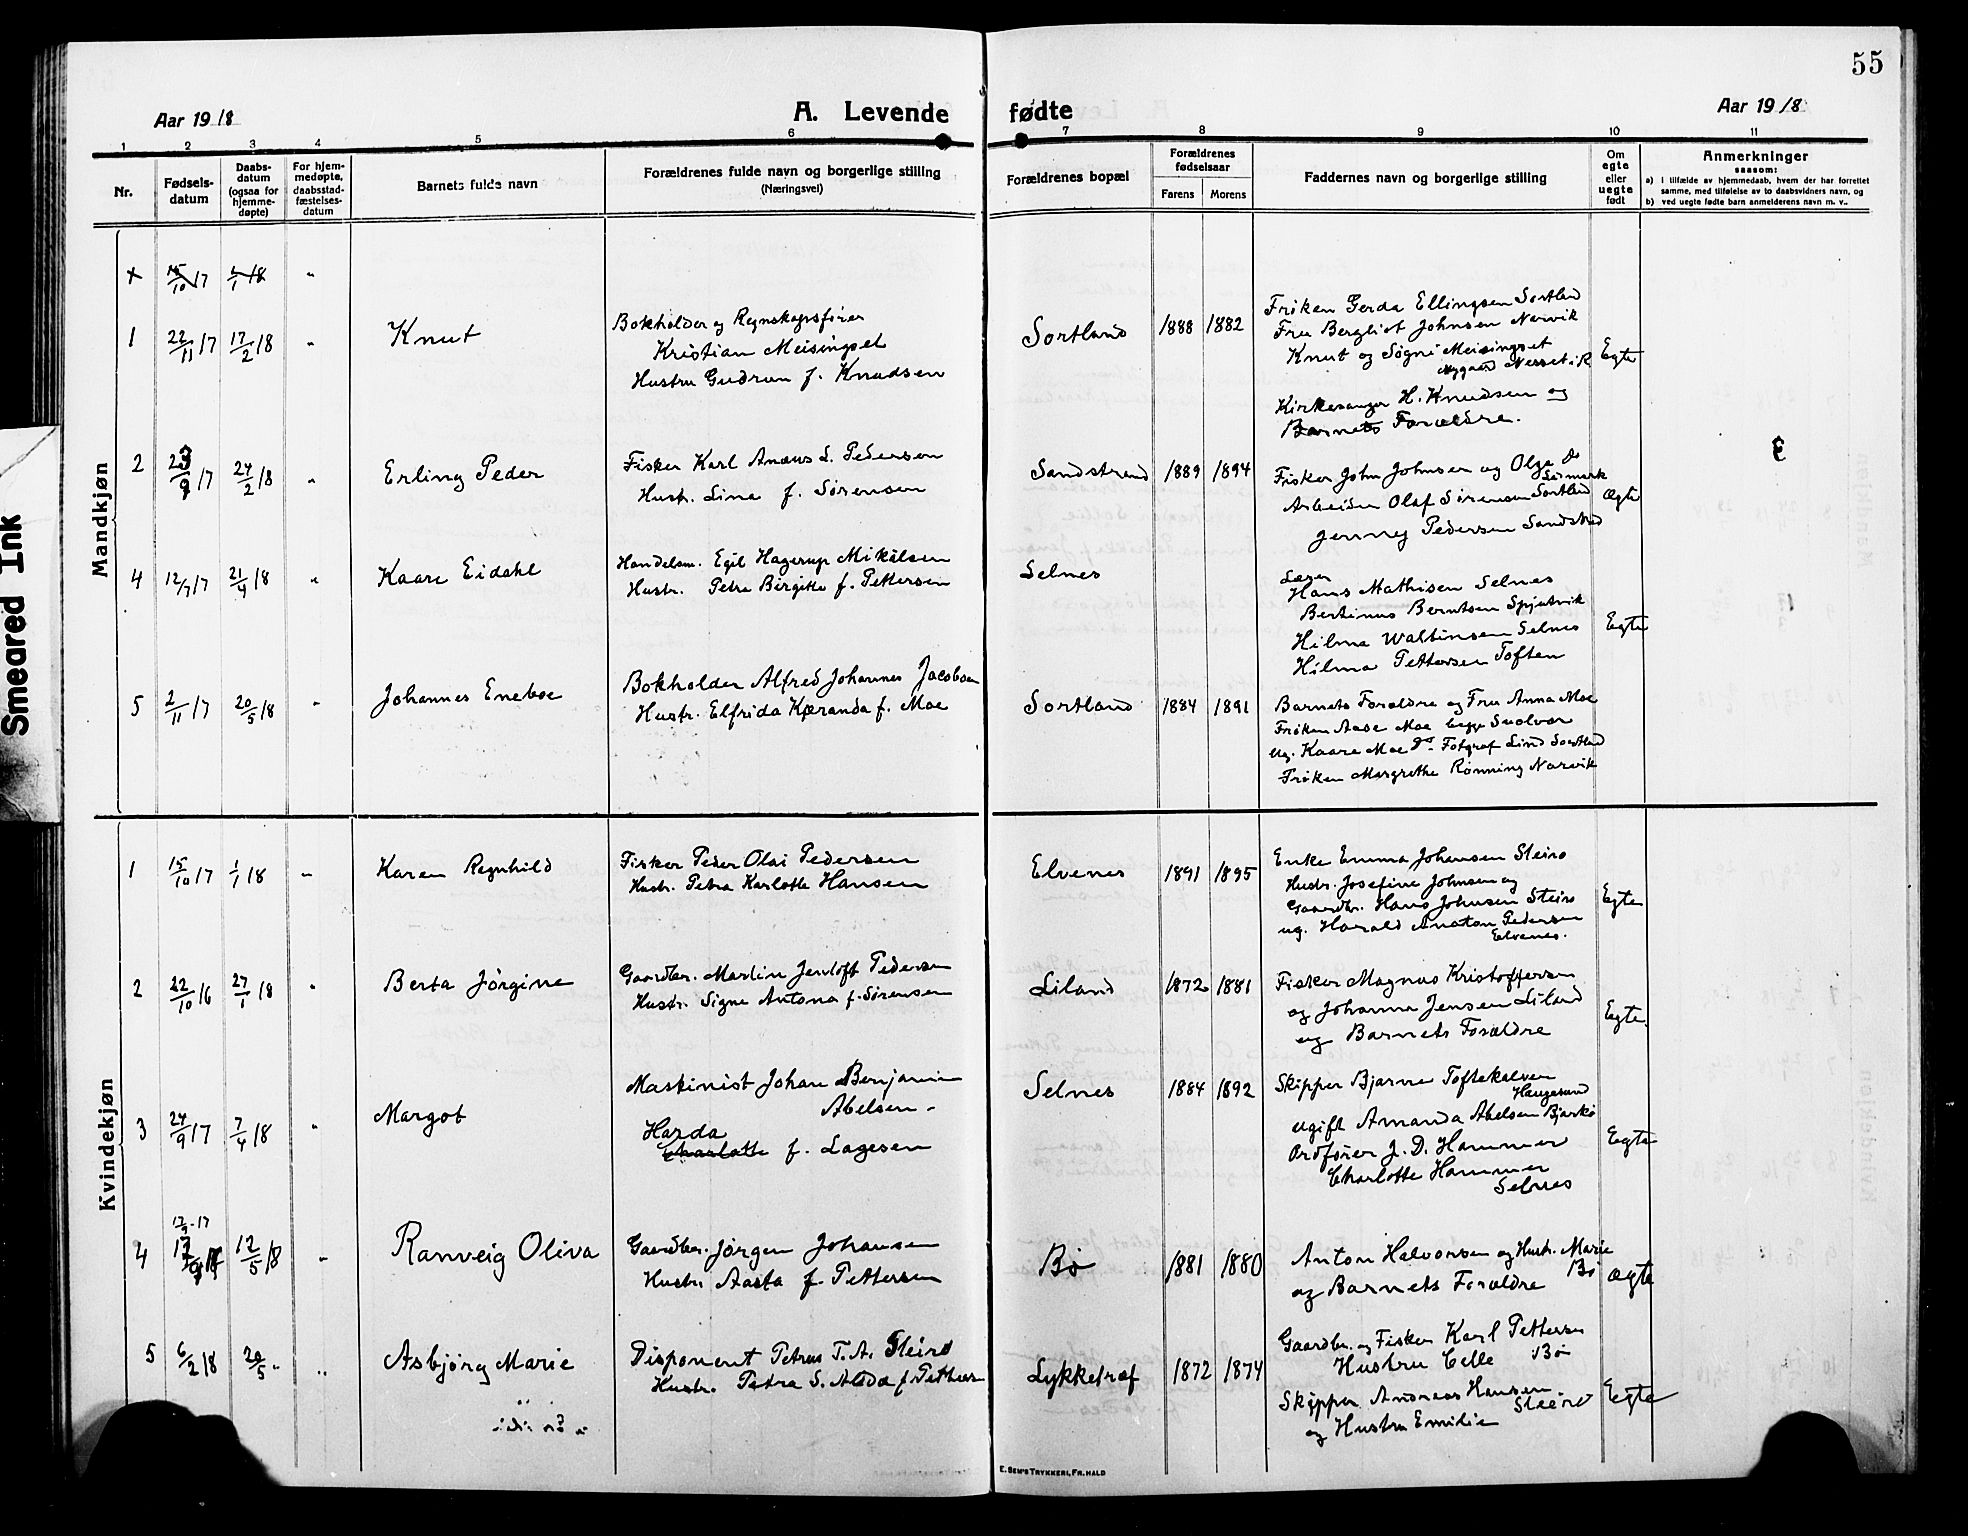 55
Aar 1918
A. Levende fødte
Aar 1918
1 2 3 4 5 6 7 8 9 10 11
Nr.
Fødsels-
datum
Daabs-
datum
(ogsaa for
hjemme-
døpte)
For hjem-
medøpte,
daabsstad-
fæstelses-
datum
Barnets fulde navn
Forældrenes fulde navn og borgerlige stilling
(Næringsvei)
Forældrenes bopæl
Forældrenes
fødselsaar
Farens Morens
Faddernes navn og borgerlige stilling
Om
egte
eller
uegte
født
Anmerkninger
saasom:
a) i tilfælde av hjemmedaab, hvem der har forrettet
samme, med tilføielse av to daabsvidners navn, og
b) ved uegte fødte barn anmelderens navn m. v..
Mandkjøn
x 15/10 17 1/1 18 "
1 22/11 17 17/2 18 " Knut
Bokholder og Regnskapsfører
Kristian Meisingset
Hustru Gudrun f. Knudsen
Sortland 1888 1882
Frøken Gerda Ellingsen Sortland
Fru Bergliot Johnsen Narvik
Knut og Søgni Meisingset
Nygaard Nesset
Kirkesanger H. Knudsen og
Barnets Forældre.
Egte
2 17 24/2 18 " Erling Peder
Fisker Karl Anæus L. Pedersen
Hustr. Lina f. Sørensen
Sandstrand 1889 1894
Fisker John Johnsen og Olga do
Arbeider Olaf Sørensen Sortland
Jenny Pedersen Sandstrd
Ægte
4 12/7 17 21/4 18 " Kaare Eidahl
Handelsm. Egil Hagerup Mikalsen
Hustr. Petra Birgitte f. Pettersen
Selnes
Hans Mathisen Selnes
Bertinus Berntsen
Hilma Waltinsen Selnes
Hilma Pettersen Toften
Egte
5 2/11 17 20/5 18 " Johannes Eneboe
Bokholder Alfred Johannes Jacobsen
Hustr. Elfrida Kjæranda f. Moe
Sortland 1884 1891
Barnets Forældre og Fru Anna Moe
Frøken Aase Moe begge Svolvær
Ug. Kaare Moe do. Fotgraf Lind Sortland
Frøken Margrethe Rønning Narvik
Kvindekjøn
1 15/10 17 1/1 18 " Karen Regnhild
Fisker Peder Olai Pedersen
Hustr. Petra Karlotte Hansen
Elvenes 1891 1895
Enke Emma Johansen Steiro
Hustr. Josefine Johnsen og
Gaardbr. Hans Johnsen Steiro
ug. Harald Anaton Pedersen
Elvenes.
Egte
2 22/10 16 27/1 18 " Berta Jørgine
Gaardbr. Martin Jentoft Pedersen
Hustr. Signe Antona f. Sørensen
Liland 1872 1881
Fisker Magnus Kristoffersen
og Johanna Jensen Liland
og Barnets Forældre
Egte.
3 24/9 17 7/4 18 " Margot
Maskinist Johan Benjamin
Abelsen -
Harda
Charlotte f. Lagesen
Selnes 1884 1892
Skipper Bjarne Toftekalven
Haugesund
ugift Amanda Abelsen Bjarkø
Ordfører J. D. Hammer
Charlotte Hammer
Selnes
Egte
12/9 - 17
4 12/5 18 " Ranveig Oliva
Gaardbr. Jørgen Johansen
Hustr Aasta f. Pettersen
Bø 1881 1880
Anton Halvorsen og Hustr. Marie
Bø
og Barnets Forældre
Ægte
5 6/2 18 20/5 " " Asbjørg Marie
Disponent Petrus T. A. Steiro
Hustr. Petra S. Alida f. Pettersen
Lykketræf 1872 1874
Gaardbr. og Fisker Karl Pettersen
Hustru Celle Bø
Skipper Andreas Hansen
Steiro
og Hustru Emilie
Egte
E. SEM'S TRYKKERI, FR.HALD
Smeared Ink